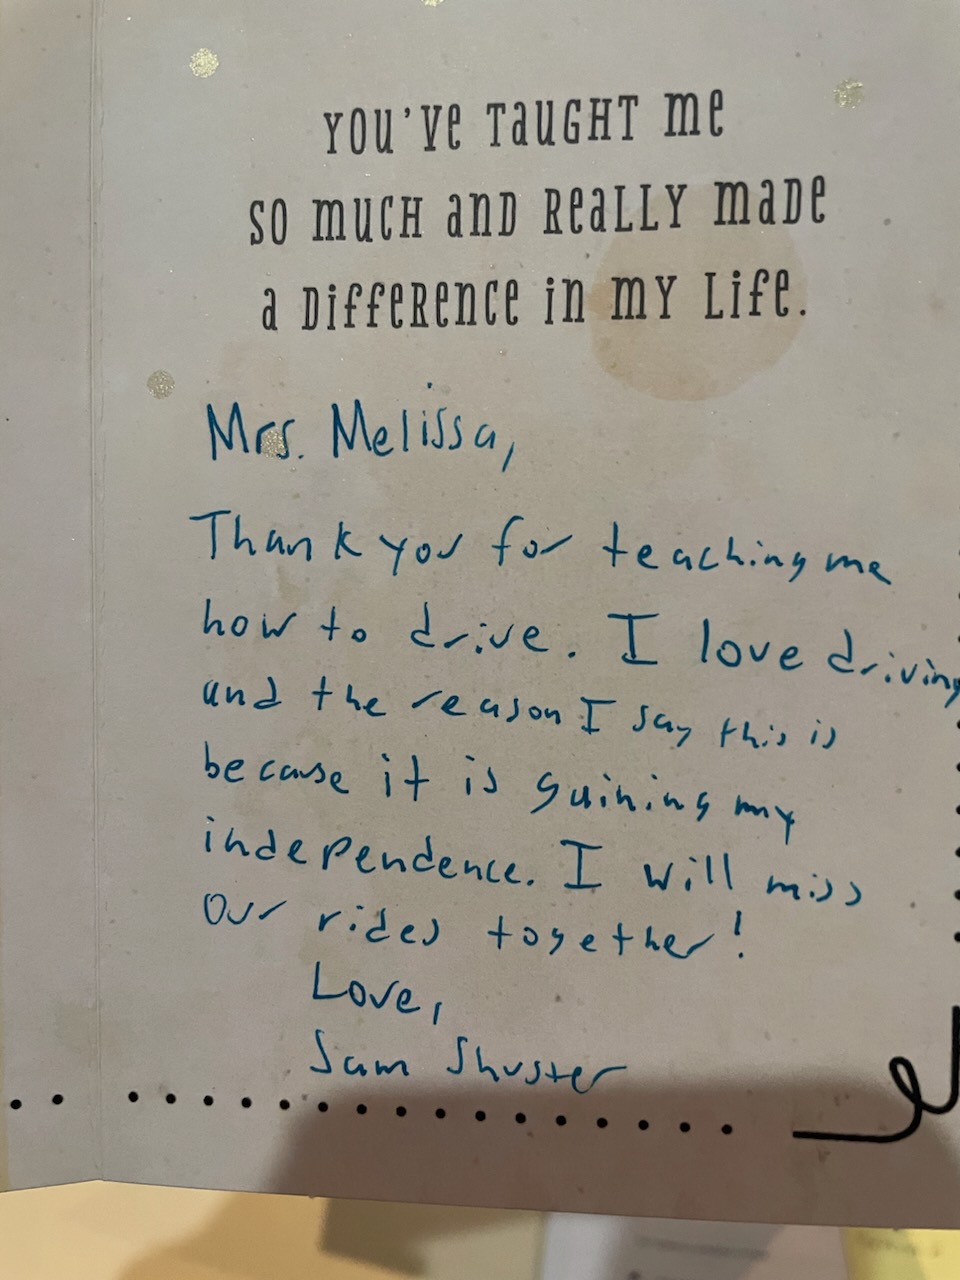 YOU'VE TAUGHT me
SO mUCH anD ReaLLY maDe
a DiffeRence in mY Life.
Mrs. Melissa,
Thank you for teaching me
how to drive. I love driving
and the reason I say this is
because it is gaining my
independence. I will miss
our rides together!
Love,
Sam Shuster